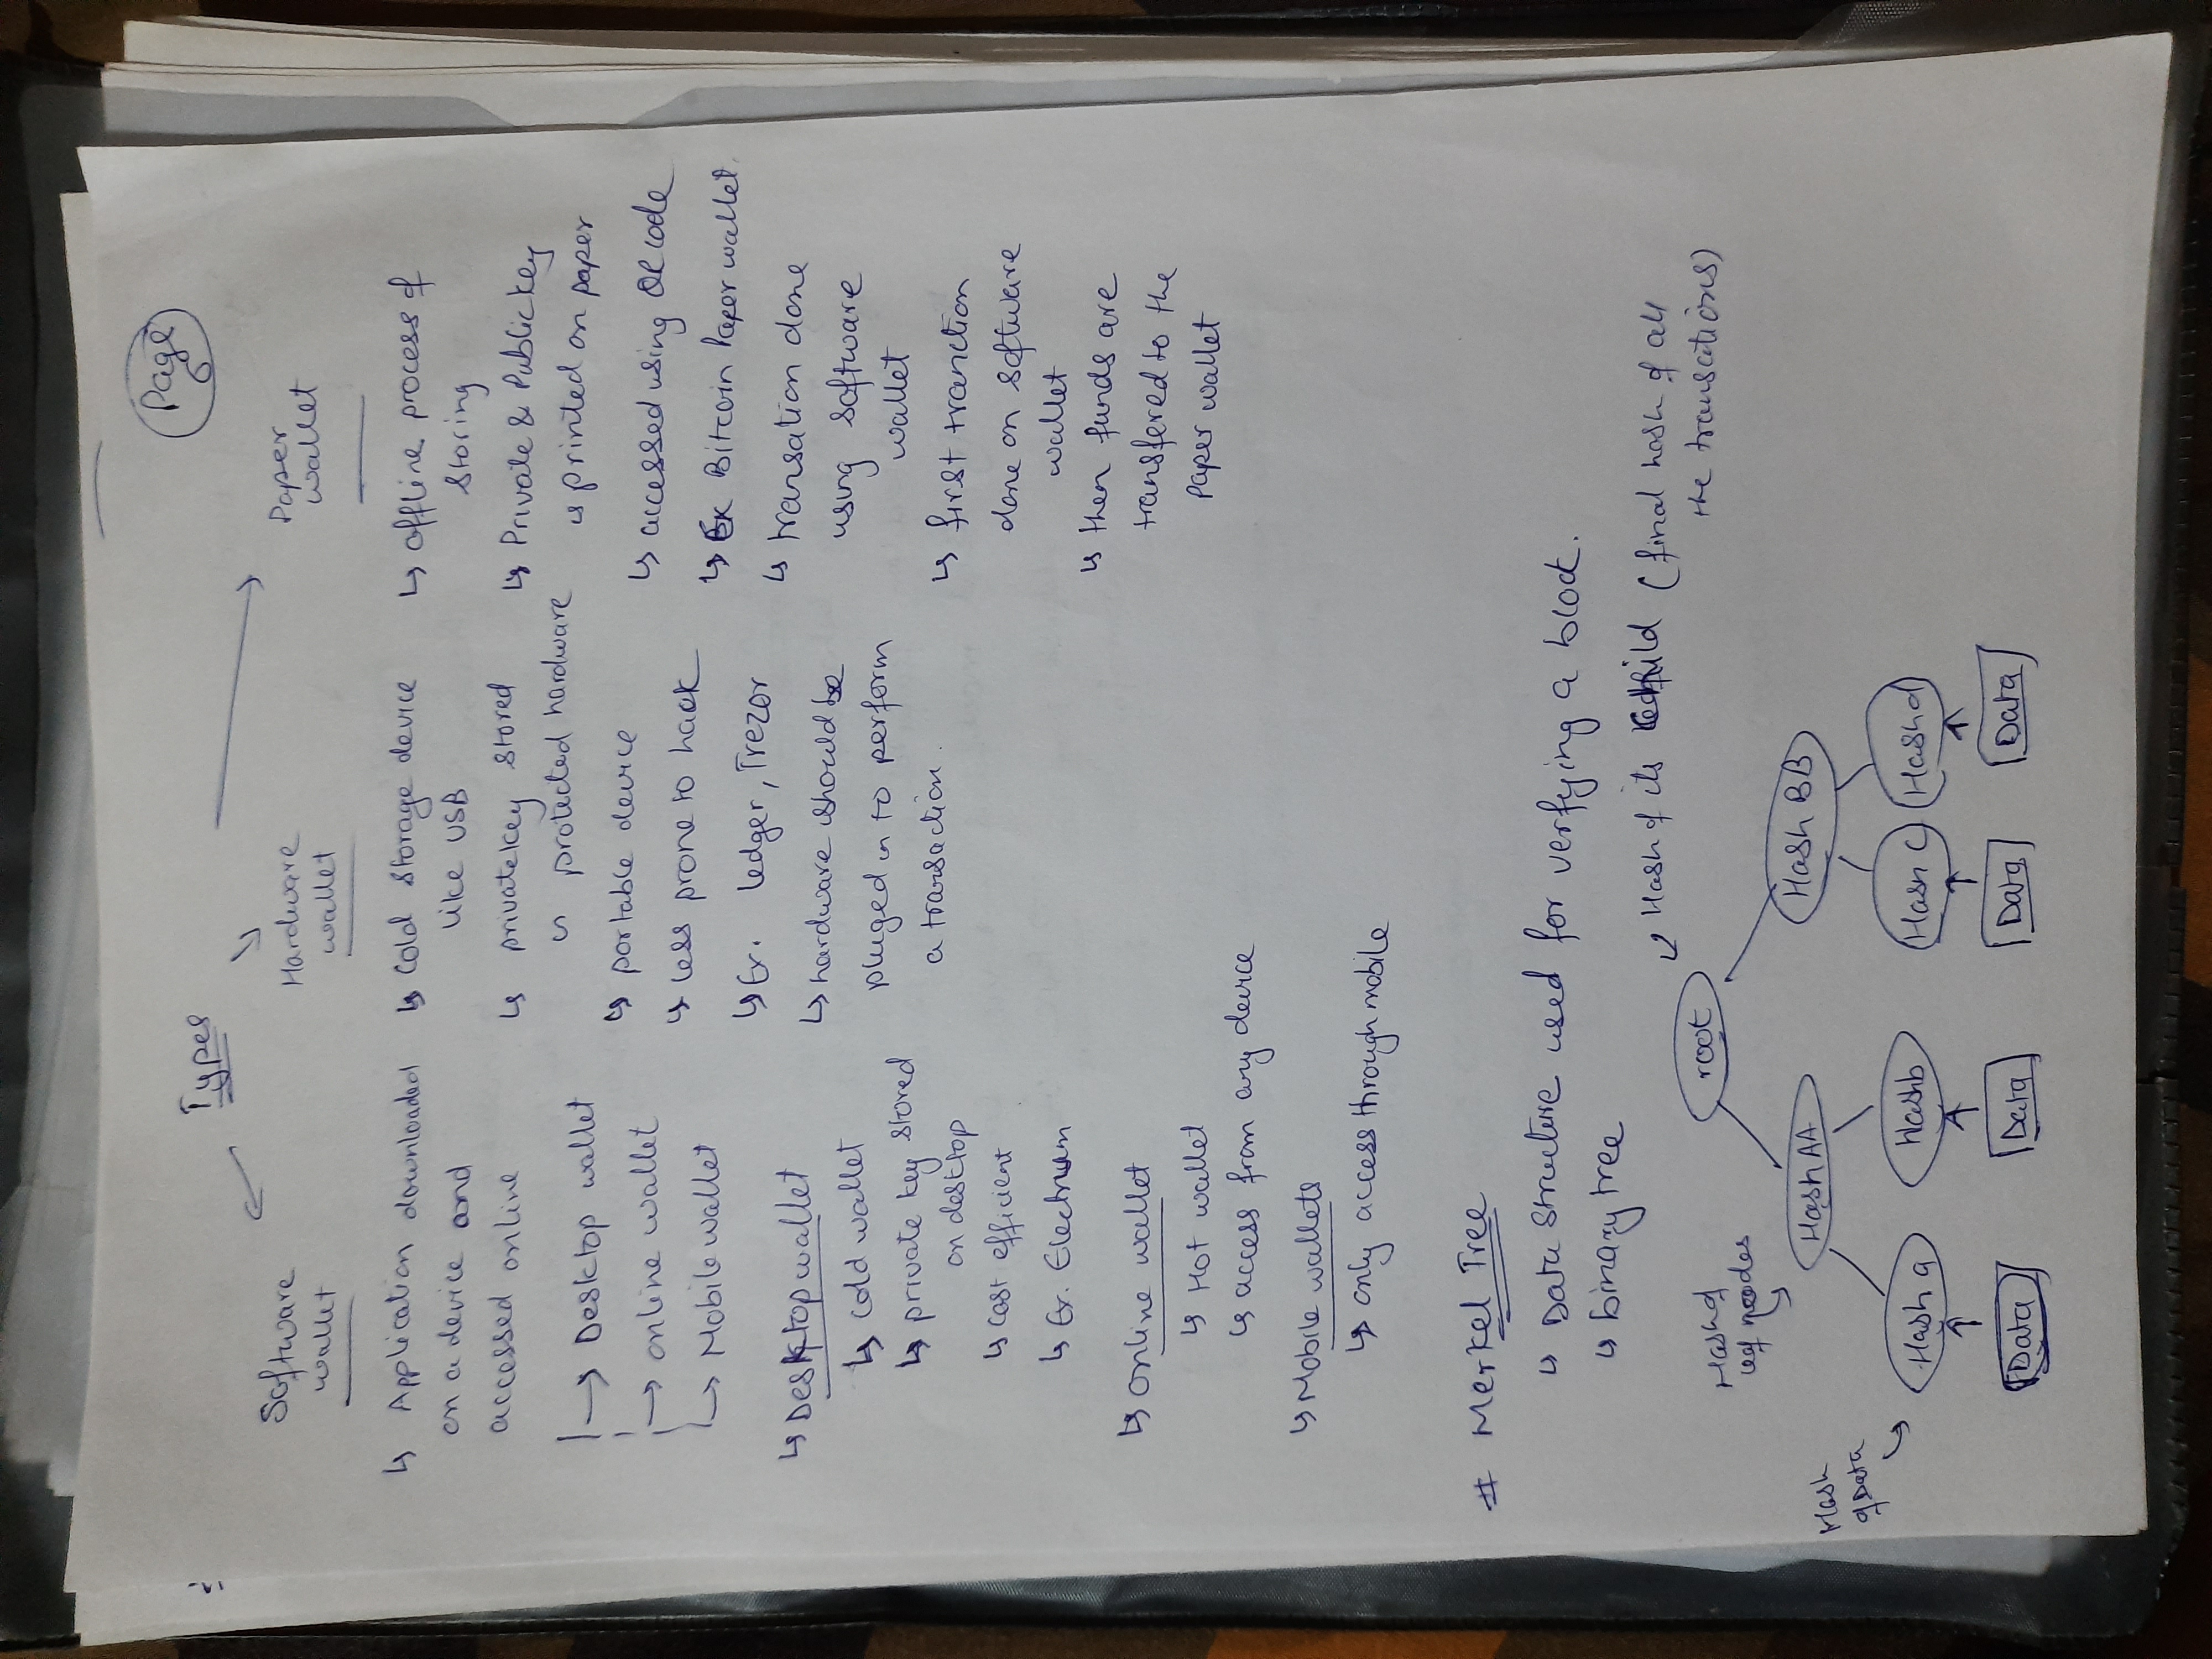 Page
6
Types
Software
wallet
↳ Application downloaded
on a device and
accessed online
→ Desktop wallet
→ online wallet
→ Mobile wallet
↳ Desktop wallet
↳ cold wallet
↳ private key stored
on desktop
↳ cost efficient
↳ Ex. Electrum
↳ online wallet
↳ Hot wallet
↳ access from any device
↳ Mobile wallets
↳ only access through mobile
Hardware
wallet
↳ cold storage device
like USB
↳ private key stored
in protected hardware
↳ portable device
↳ less prone to hack
↳ Ex. ledger, Trezor
↳ hardware should be
pluged in to perform
a transaction.
Paper
wallet
↳ offline process of
storing
↳ Private & Public key
is printed on paper
↳ accessed using QR code
↳ Ex Bitcoin Paper wallet.
↳ transation done
using software
wallet
↳ first tranction
done on software
wallet
↳ then funds are
transfered to the
Paper wallet
# Merkel Tree
↳ Data structure used for verfying a block.
↳ binary tree
Hash of its child (final hash of all
the transations)
root
Hash of
leaf noodes
Hash AA
Hash BB
Hash
of Data
Hash a
Hash b
Hash C
Hash d
Data
Data
Data
Data